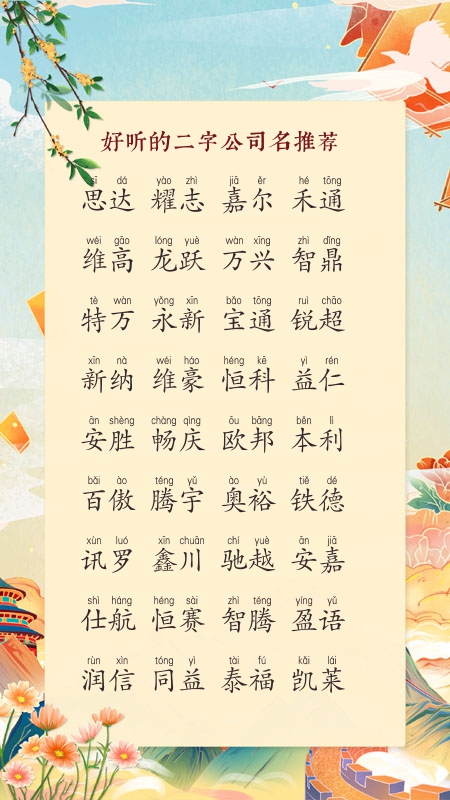 好听的二字公司名推荐
sī dá yào zhì jiā ěr hé tōng
思达 耀志 嘉尔 禾通
wéi gāo lóng yuè wàn xīng zhì dǐng
维高 龙跃 万兴 智鼎
tè wàn yǒng xīn bǎo tōng ruì chāo
特万 永新 宝通 锐超
xīn nà wéi háo héng kē yì rén
新纳 维豪 恒科 益仁
ān shèng chàng qìng ōu bāng běn lì
安胜 畅庆 欧邦 本利
bǎi ào téng yǔ ào yù tiě dé
百傲 腾宇 奥裕 铁德
xùn luó xīn chuān chí yuè ān jiā
讯罗 鑫川 驰越 安嘉
shì háng héng sài zhì téng yíng yǔ
仕航 恒赛 智腾 盈语
rùn xìn tóng yì tài fú kǎi lái
润信 同益 泰福 凯莱